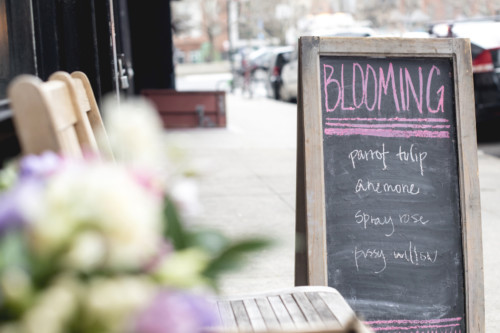 BLOOMING
parrot tulip
anemone
spray rose
pussy willow